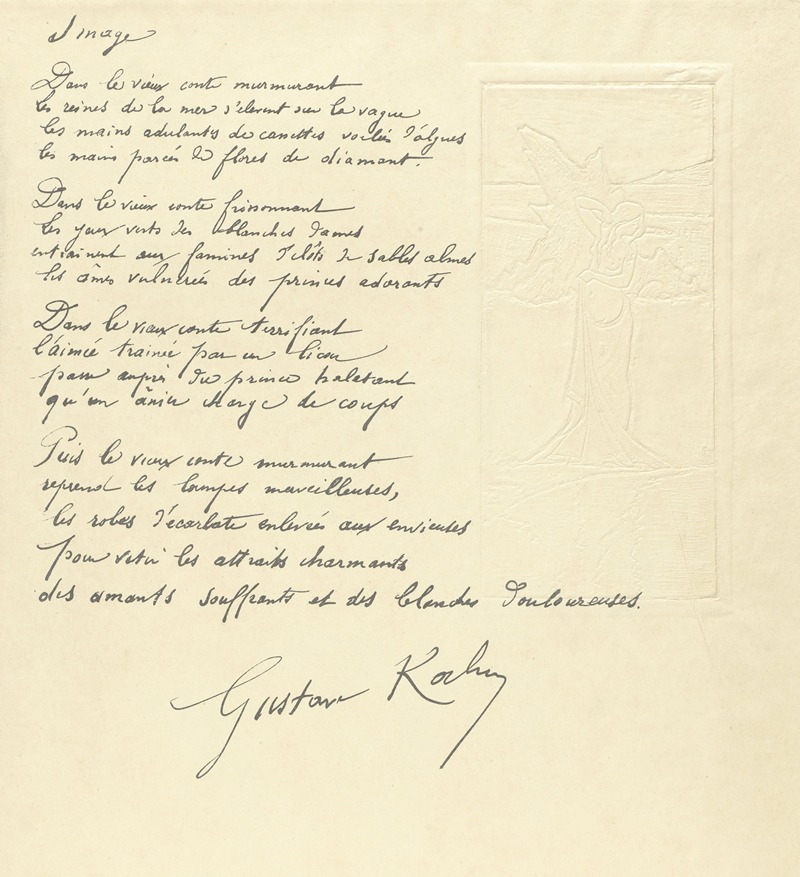 Image
Dans le vieux conte murmurant
les reines de la mer s'élèvent sur la vague
les mains adulantes de voilées d'algues
les mains parées de flores de diamant.
Dans le vieux conte frissonnant
les yeux verts des blanches dames
entrainent aux famines d'ilôts de sables almes
les âmes vulnérées des princes adorants
Dans le vieux conte terrifiant
l'aimée trainée par un lien
passe auprès du prince haletant
qu'un ânier charge de coups
Puis le vieux conte murmurant
reprend les lampes merveilleuses,
les robes d'écarlate enlevées aux envieuses
pour vétir les attraits charmants
des amants souffrants et des blanches douloureuses.
Gustave Kahn